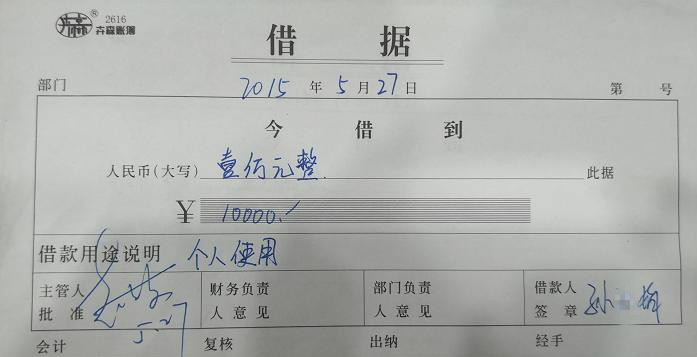 ® 2616
卉森账簿
借据
部门 2015年5月27日 第 号
今借到
人民币(大写) 壹佰元整. 此据
¥ 10000./
借款用途说明 个人使用
主管人 财务负责 部门负责 借款人
批准 5.27 人意见 人意见 签章 孙
会计 复核 出纳 经手